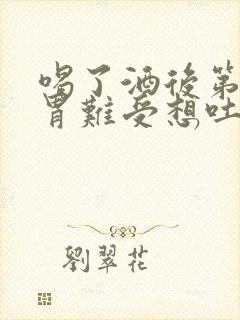 喝了酒後第
胃難受想吐
劉翠花